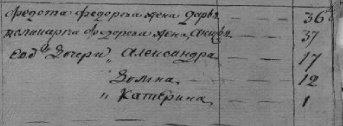 Федота Федорова жена Дарья 36
Поликарпа Федорова жена 37
Его Дочери Александра 17
Зотина 12
и Катерина 1